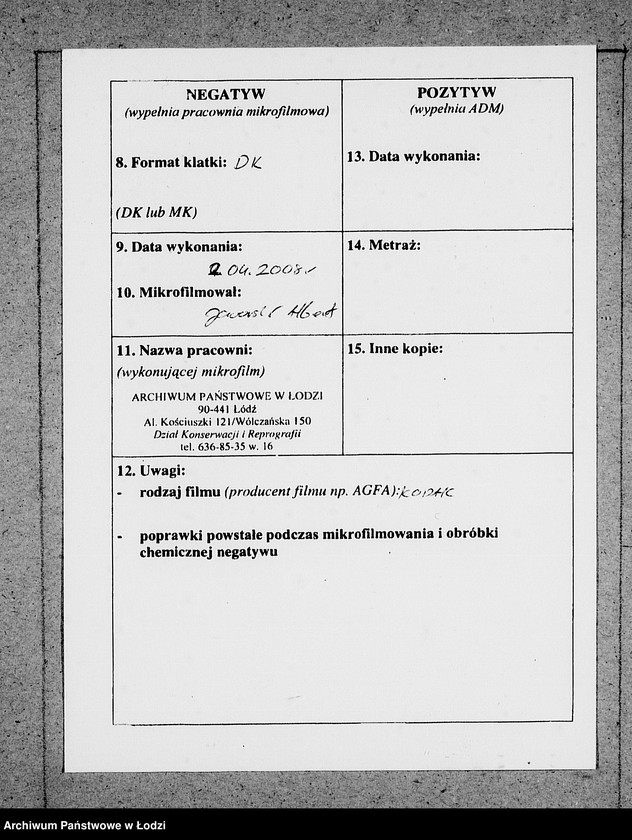 NEGATYW
(wypełnia pracownia mikrofilmowa)
8. Format klatki: DK
(DK lub MK)
9. Data wykonania:
2 04. 2008r
10. Mikrofilmował:
Albert
11. Nazwa pracowni:
(wykonującej mikrofilm)
ARCHIWUM PAŃSTWOWE W ŁODZI
90-441 Łódź
Al. Kościuszki 121/Wólczańska 150
Dział Konserwacji i Reprografii
tel. 636-85-35 w. 16
POZYTYW
(wypełnia ADM)
13. Data wykonania:
14. Metraż:
15. Inne kopie:
12. Uwagi:
- rodzaj filmu (producent filmu np. AGFA): KODAK
- poprawki powstałe podczas mikrofilmowania i obróbki
chemicznej negatywu
Archiwum Państwowe w Łodzi